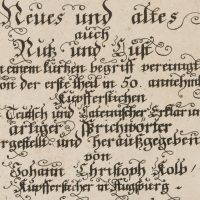 Neues und altes
auch
Nutz und Lust
in einem kurtzen begriff vereinigt
von der erste theil in 50. annehml
Kupfferstichen
Teutsch und Lateinischer Erklärun
artiger Sprichwörter
rgestellt und heraußgegeben
von
Johann Christoph Kolb
Kupfferstecher in Augspurg.